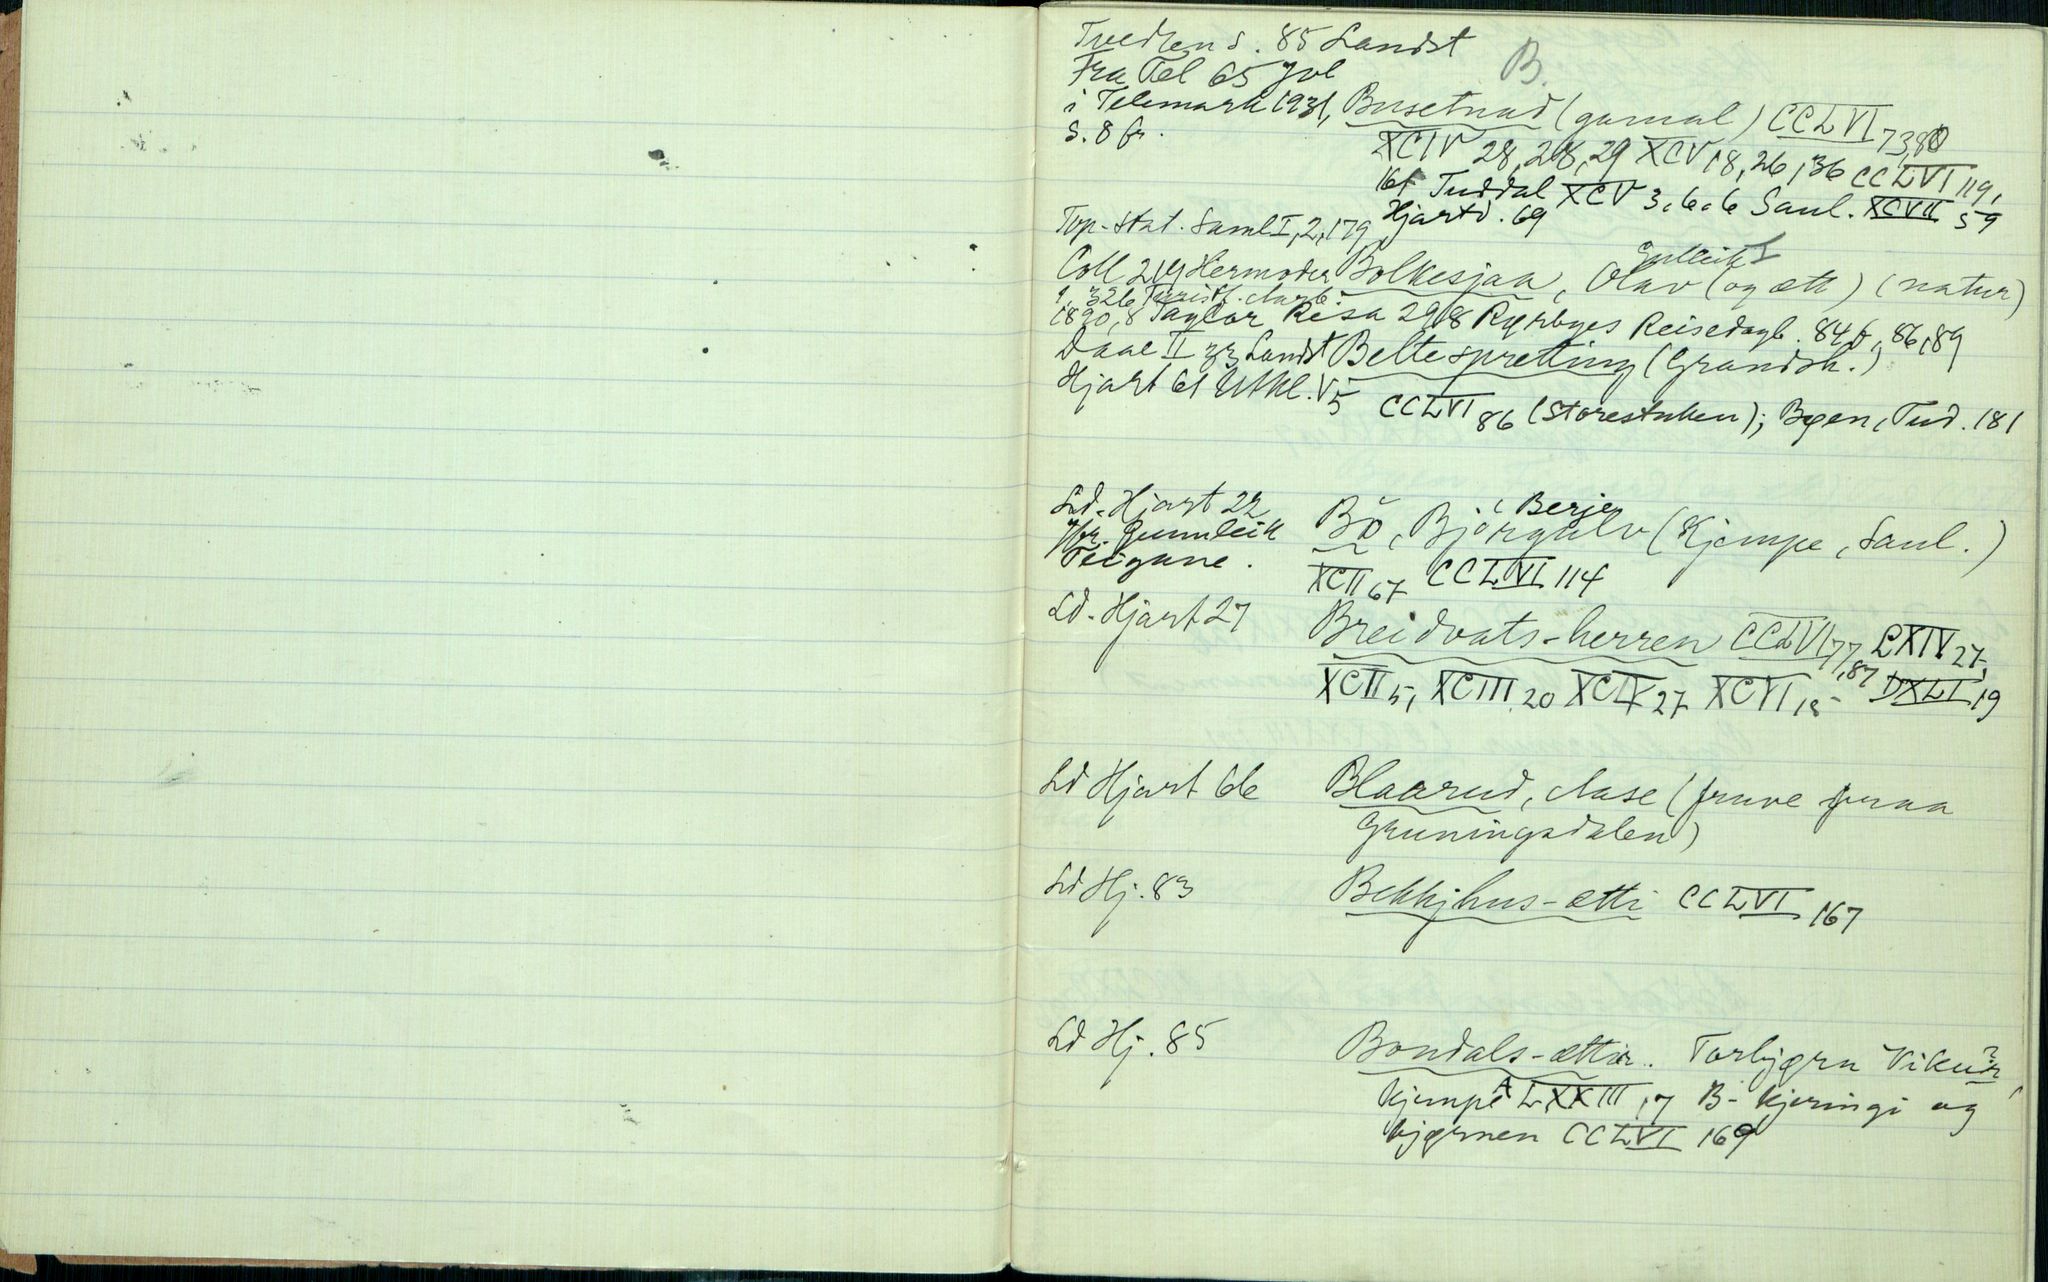 Tvedten s. 85 Landst
B.
Fra Tel 65 Jol
i Telemark 1931, Busetnad (gamal) CCLVI 73,80
s. 8 fr.
XCIV 28, 28, 29 XCV 18, 26, 36 CCLVI 119,
161 Tuddal XCV 3, 6, 6 Saul. XCVII 59
Top-stat. Saml I, 2, 179 Hjartd. 69
Gulleik I
Coll 219 Hermoder Bolkesjaa, Olav (og ætt) (natur)
9, 326 Turistf. Aarb.
1890, 8 Taylor Reisa 298 Rørbyes Reisedagb. 84 f, 86, 89
Daae II 33 Landst Beltespretting (Grandsh.)
Hjart 61 Utkl. V 5
CCLVI 86 (Storestuken); Bøen, Tud. 181
Ld. Hjart 22
i Berje
Bø, Bjørgulv (Kjempe, Saul.)
Jfr. Gunnleik
Teigane.
XCII 67 CCLVI 114
Ld. Hjart 27
Breidvats-herren CCLVI 77, 87 LXIV 27,
XCII 5, XCIII 20 XCIV 27 XCVI 18 DXLI 19
Ld Hjart 66
Blaarud, Aase (fruve fraa
Gruningsdalen)
Ld Hj. 83
Bekkjhus-ætti CCLVI 167
Ld Hj. 85
Bondals-ættir. Torbjørn Vikuir,
Kjempe LXXIII, 7 B- kjeringi og
bjørnen CCLVI 169